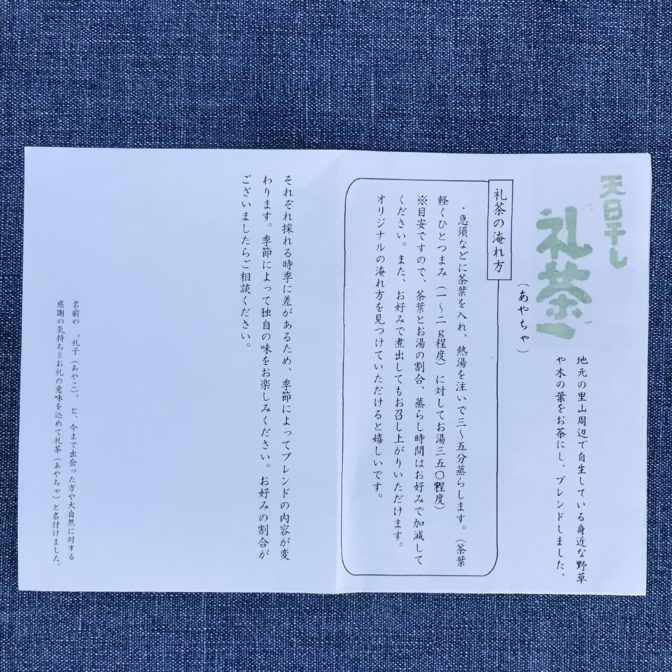 天日干し
礼茶
(あやちゃ)
地元の里山周辺で自生している身近な野草
や木の葉をお茶にし、ブレンドしました。
礼茶の淹れ方
・急須などに茶葉を入れ、熱湯を注いで三～五分蒸らします。(茶葉
軽くひとつまみ(一～二g程度)に対してお湯三五〇㏄程度)
※目安ですので、茶葉とお湯の割合、蒸らし時間はお好みで加減して
ください。また、お好みで煮出してもお召し上がりいただけます。
オリジナルの淹れ方を見つけていただけると嬉しいです。
それぞれ採れる時季に差があるため、季節によってブレンドの内容が変
わります。季節によって独自の味をお楽しみください。お好みの割合が
ございましたらご相談ください。
名前の〝礼子(あやこ)〟と、今まで出会った方や大自然に対する
感謝の気持ち=お礼の意味を込めて礼茶(あやちゃ)と名付けました。